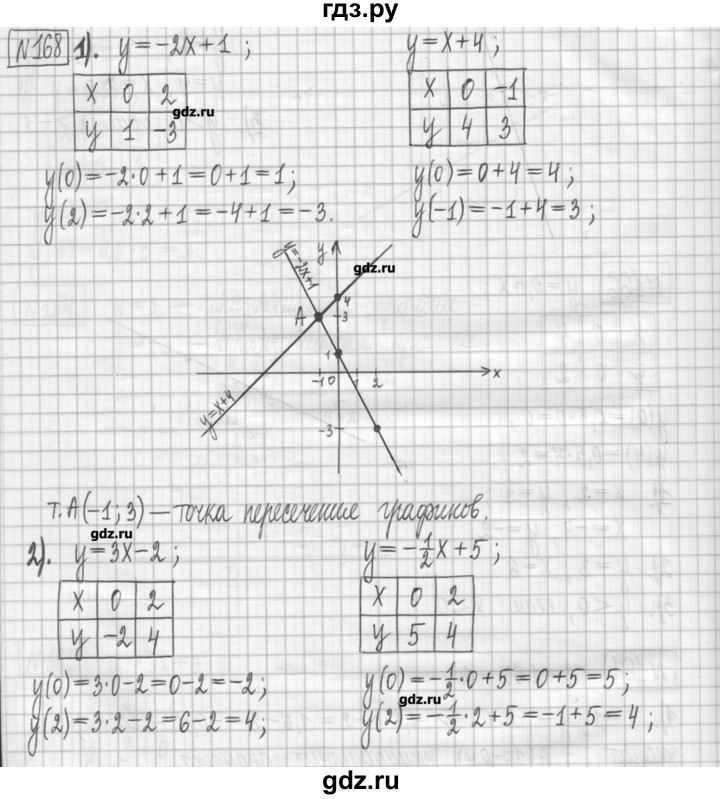 гдз.ру
N168 1). y=-2x+1; y=x+4;
x 0 2 x 0 -1
y 1 -3 y 4 3
gdz.ru
y(0)=-2·0+1=0+1=1; y(0)=0+4=4;
y(2)=-2·2+1=-4+1=-3. y(-1)=-1+4=3;
y=-2x+1 y
gdz.ru
4
A 3
1
-1 0 1 2 x
y=x+4
-3
т. A(-1; 3) — точка пересечение графиков.
gdz.ru
2). y=3x-2; y=-1/2x+5;
x 0 2 x 0 2
y -2 4 y 5 4
y(0)=3·0-2=0-2=-2; y(0)=-1/2·0+5=0+5=5;
gdz.ru
y(2)=3·2-2=6-2=4; y(2)=-1/2·2+5=-1+5=4;
gdz.ru